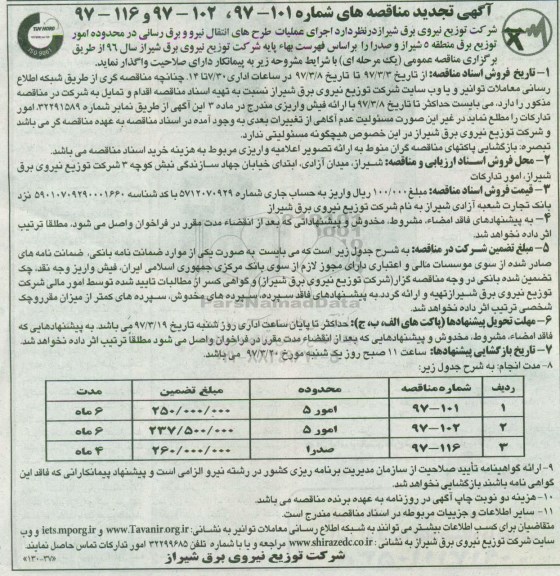 آگهی تجدید مناقصه های شماره ۱۰۱-۹۷، ۱۰۲-۹۷ و ۱۱۶-۹۷
شرکت توزیع نیروی برق شیراز درنظر دارد اجرای عملیات طرح های انتقال نیرو و برق رسانی در محدوده امور
توزیع برق منطقه ۵ شیراز و صدرا را براساس فهرست بهاء پایه شرکت توزیع نیروی برق شیراز سال ۹۶ از طریق
برگزاری مناقصه عمومی (یک مرحله ای) با شرایط مشروحه زیر به پیمانکار دارای صلاحیت واگذار نماید.
۱- تاریخ فروش اسناد مناقصه: از تاریخ ۹۷/۳/۳ تا تاریخ ۹۷/۳/۸ در ساعات اداری ۷/۳۰ تا ۱۴. چنانچه مناقصه گری از طریق شبکه اطلاع
رسانی معاملات توانیر و یا وب سایت شرکت توزیع نیروی برق شیراز نسبت به تهیه اسناد مناقصه اقدام و تمایل به شرکت در مناقصه
مذکور را دارد، می بایست حداکثر تا تاریخ ۹۷/۳/۸ با ارائه فیش واریزی مندرج در ماده ۳ این آگهی از طریق نمابر شماره ۳۲۲۹۱۵۸۹، امور
تدارکات را مطلع نماید در غیر این صورت مسئولیت عدم آگاهی از تغییرات بعدی به وجود آمده در اسناد مناقصه به عهده مناقصه گر می باشد
و شرکت توزیع نیروی برق شیراز در این خصوص هیچگونه مسئولیتی ندارد.
تبصره: بازگشایی پاکتهای مناقصه گران منوط به ارائه تصویر اعلامیه واریزی مربوط به هزینه خرید اسناد مناقصه می باشد.
۲- محل فروش اسناد ارزیابی و مناقصه: شیراز، میدان آزادی، ابتدای خیابان جهاد سازندگی نبش کوچه ۳ شرکت توزیع نیروی برق
شیراز، امور تدارکات
۳- قیمت فروش اسناد مناقصه: مبلغ ۱۰۰/۰۰۰ ریال واریز به حساب جاری شماره ۵۷۱۲۰۷۰۹۲۹ با کد شناسه ۵۹۰۱۰۷۰۹۲۹۰۰۰۱۶۶۰ نزد
بانک تجارت شعبه آزادی شیراز به نام شرکت توزیع نیروی برق شیراز
۴- به پیشنهادهای فاقد امضاء، مشروط، مخدوش و پیشنهاداتی که بعد از انقضاء مدت مقرر در فراخوان واصل می شود، مطلقا ترتیب
اثر داده نخواهد شد.
۵- مبلغ تضمین شرکت در مناقصه: به شرح جدول زیر است که می بایست به صورت یکی از موارد ضمانت نامه بانکی، ضمانت نامه های
صادر شده از سوی موسسات مالی و اعتباری دارای مجوز لازم از سوی بانک مرکزی جمهوری اسلامی ایران، فیش واریز وجه نقد، چک
تضمین شده بانکی در وجه مناقصه گزار (شرکت توزیع نیروی برق شیراز) و گواهی کسر از مطالبات تایید شده توسط امور مالی شرکت
توزیع نیروی برق شیراز تهیه و ارائه گردد. به پیشنهادهای فاقد سپرده، سپرده های مخدوش، سپرده های کمتر از میزان مقرر و چک
شخصی ترتیب اثر داده نخواهد شد.
۶- مهلت تحویل پیشنهادها (پاکت های الف، ب، ج): حداکثر تا پایان ساعت اداری روز شنبه تاریخ ۹۷/۳/۱۹ می باشد. به پیشنهادهایی که
فاقد امضاء، مشروط، مخدوش و پیشنهادهایی که بعد از انقضاء مدت مقرر در فراخوان واصل می شود مطلقا ترتیب اثر داده نخواهد شد.
۷- تاریخ بازگشایی پیشنهادها: ساعت ۱۱ صبح روز یک شنبه مورخ ۹۷/۳/۲۰ می باشد.
۸- مدت انجام: به شرح جدول زیر:
ردیف شماره مناقصه محدوده مبلغ تضمین مدت
۱ ۱۰۱-۹۷ امور ۵ ۲۵۰/۰۰۰/۰۰۰ ۶ ماه
۲ ۱۰۲-۹۷ امور ۵ ۲۳۷/۵۰۰/۰۰۰ ۶ ماه
۳ ۱۱۶-۹۷ صدرا ۲۶۰/۰۰۰/۰۰۰ ۴ ماه
۹- ارائه گواهینامه تأیید صلاحیت از سازمان مدیریت برنامه ریزی کشور در رشته نیرو الزامی است و پیشنهاد پیمانکارانی که فاقد این
گواهی نامه باشند بازگشایی نخواهد شد.
۱۰- هزینه دو نوبت چاپ آگهی در روزنامه به عهده برنده مناقصه می باشد.
۱۱- سایر اطلاعات و جزییات مربوطه در اسناد مناقصه مندرج است.
متقاضیان برای کسب اطلاعات بیشتر می توانند به شبکه اطلاع رسانی معاملات توانیر به نشانی: www.Tavanir.org.ir و iets.mporg.ir و وب
سایت شرکت توزیع نیروی برق شیراز به نشانی: www.shirazedc.co.ir مراجعه و یا با شماره تلفن ۳۲۲۹۹۶۸۵ امور تدارکات تماس حاصل نمایند.
شرکت توزیع نیروی برق شیراز
«۱۳۰-۳۷»
TUV NORD
ParsNamadData